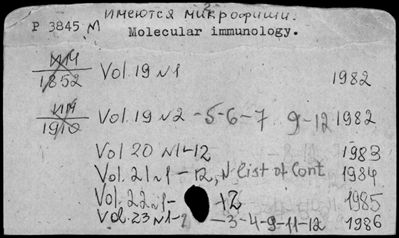 имеются микрофиши.
P 3845 M
Molecular immunology.
ИМ
1852 Vol. 19 N1 1982
ИМ
1910 Vol. 19 N2 -5-6-7 9-12 1982
Vol 20 N1-12 1983
Vol. 21 N1 - 12, N List of Cont 1984
Vol. 22 N1- -12 1985
Vol. 23 N1-2 -3-4-9-11-12 1986